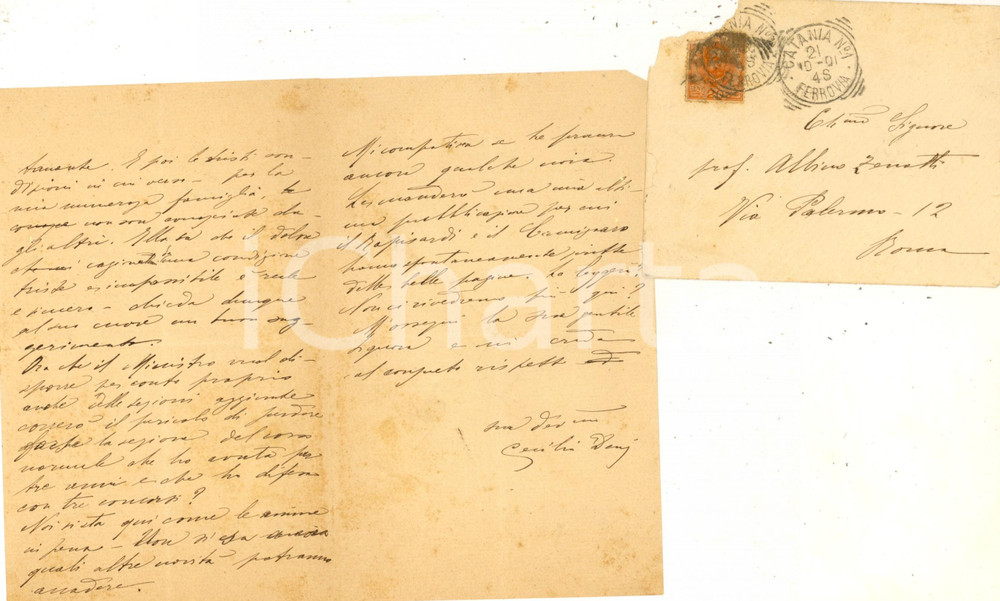 tramente. E poi le tristi con-
dizioni in cui verso - per la
mia numerosa famiglia, le
non son conosciute da-
gli altri. Ella sa che il dolore
una condizione
triste e impossibile è reale
e sincero - chieda dunque
al suo cuore un buon sug
gerimento.
Ora che il Ministro vuol di-
sporre per conto proprio
anche delle sezioni aggiunte
correrò il pericolo di perdere
la sezione del corso
normale che ho avuta per
tre anni e che ho difesa
con tre concorsi?
Noi si sta qui come le anime
in pena - Non si sa ancora
quali altre novità potranno
accadere.
Mi compatisca e he
ancora qualche
Le manderò una mia ulti-
ma pubblicazione per cui
il Rapisardi e il
hanno spontaneamente
delle belle pagine. La leggerà?
Non ci rivedremo più qui?
M'ossequi la sua gentile
Signora e mi creda
al consueto rispetto
sua dev.ma
Cecilia Deni
CATANIA No 1
FERROVIA
CATANIA No 1
21
10-01
4S
FERROVIA
Ch.mo Signore
prof. Albino Zenatti
Via Palermo - 12
Roma
iCharta